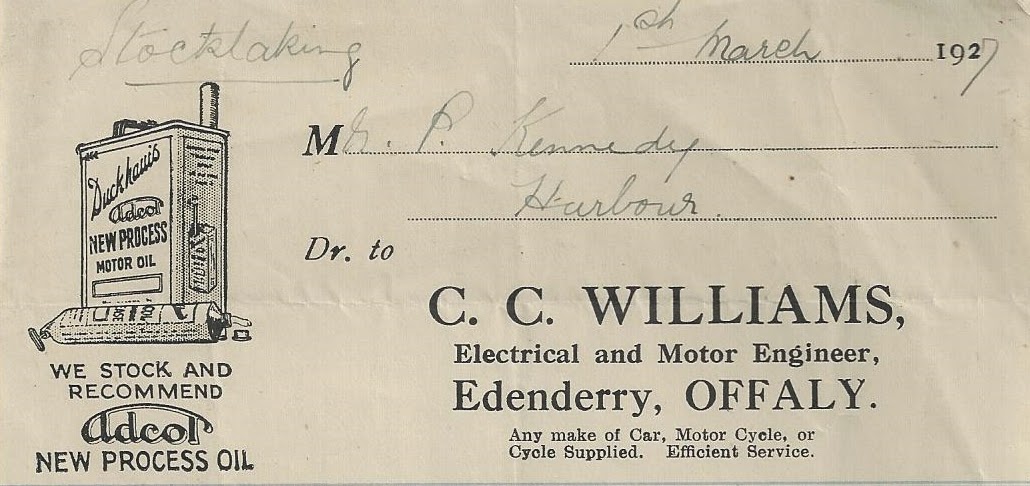 Stocktaking
1sh March 1927
Mr. P. Kennedy
Harbour.
Dr. to
C. C. WILLIAMS,
Electrical and Motor Engineer,
Edenderry, OFFALY.
Any make of Car, Motor Cycle, or
Cycle Supplied. Efficient Service.
Duckham's
Adcol
NEW PROCESS
MOTOR OIL
WE STOCK AND
RECOMMEND
Adcol
NEW PROCESS OIL